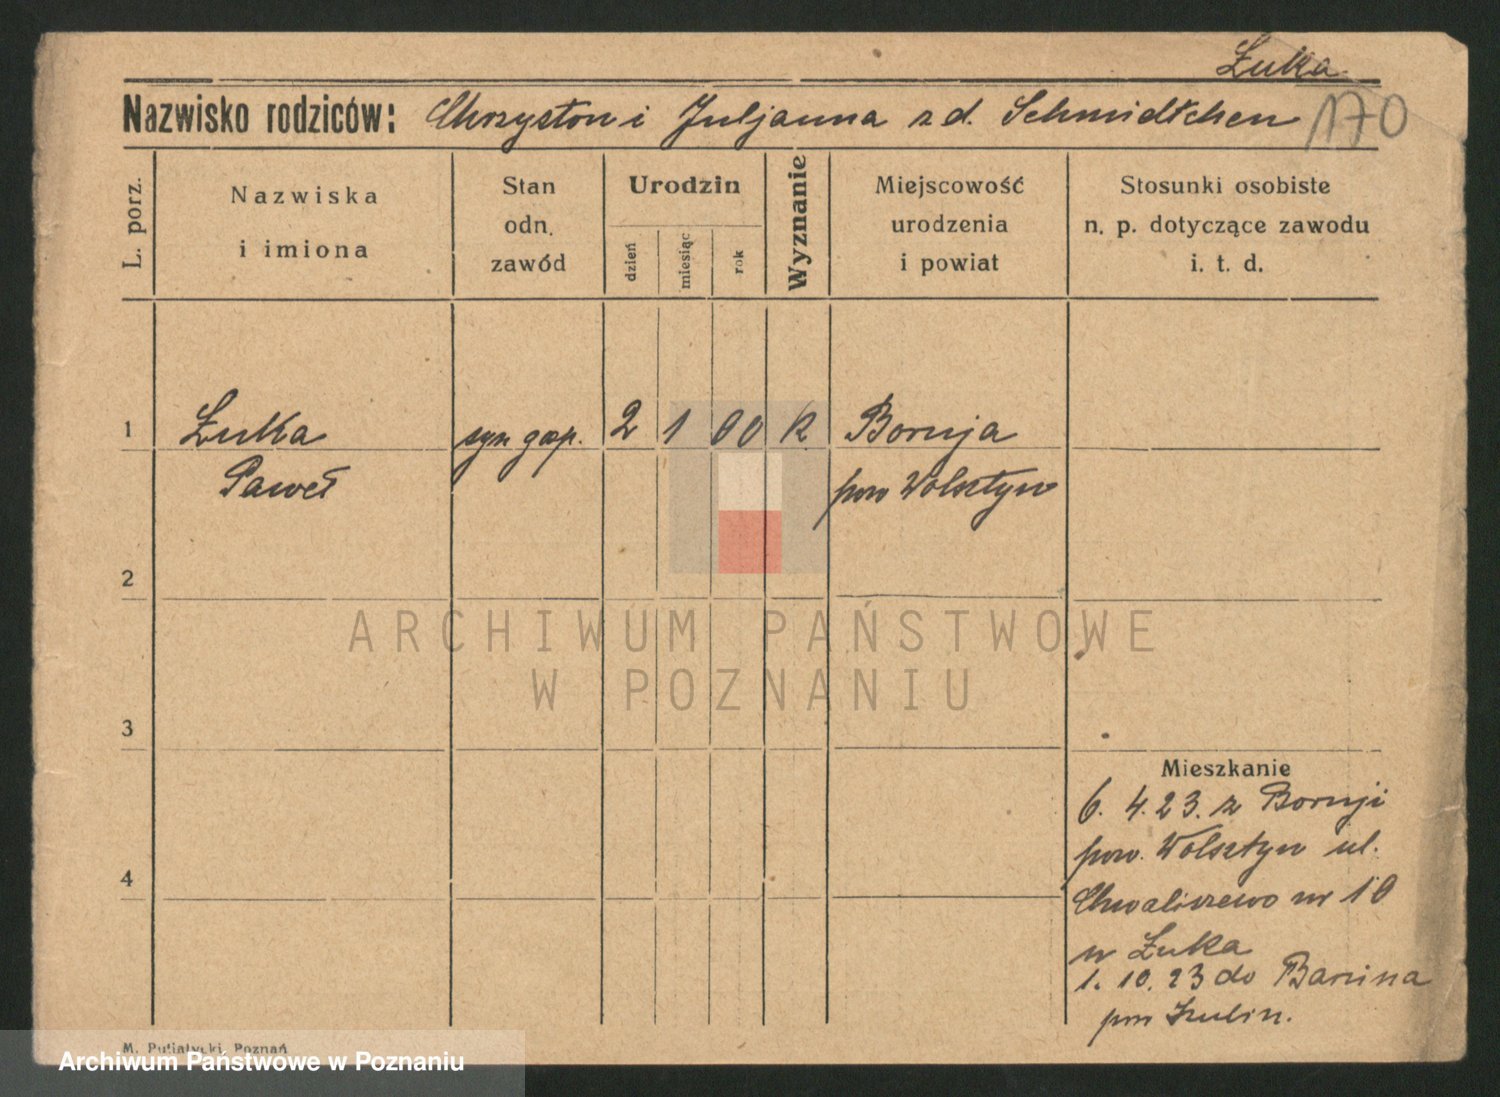 Żuka
Nazwisko rodziców: Chryston i Juljanna z d. Schmidtchen 170
L. porz.
Nazwiska
i imiona
Stan
odn.
zawód
Urodzin
dzień
miesiąc
rok
Wyznanie
Miejscowość
urodzenia
i powiat
Stosunki osobiste
n. p. dotyczące zawodu
i. t. d.
1 Żuka syn gosp. 2 1 00 k Boruja
Paweł pow Wolsztyn
2
ARCHIWUM PAŃSTWOWE
W POZNANIU
3
Mieszkanie
6. 4. 23. z Boruji
pow. Wolsztyn ul.
4
Chwaliszewo nr 10
u Żuka
1. 10. 23 do
M. Putiatycki, Poznań
Archiwum Państwowe w Poznaniu